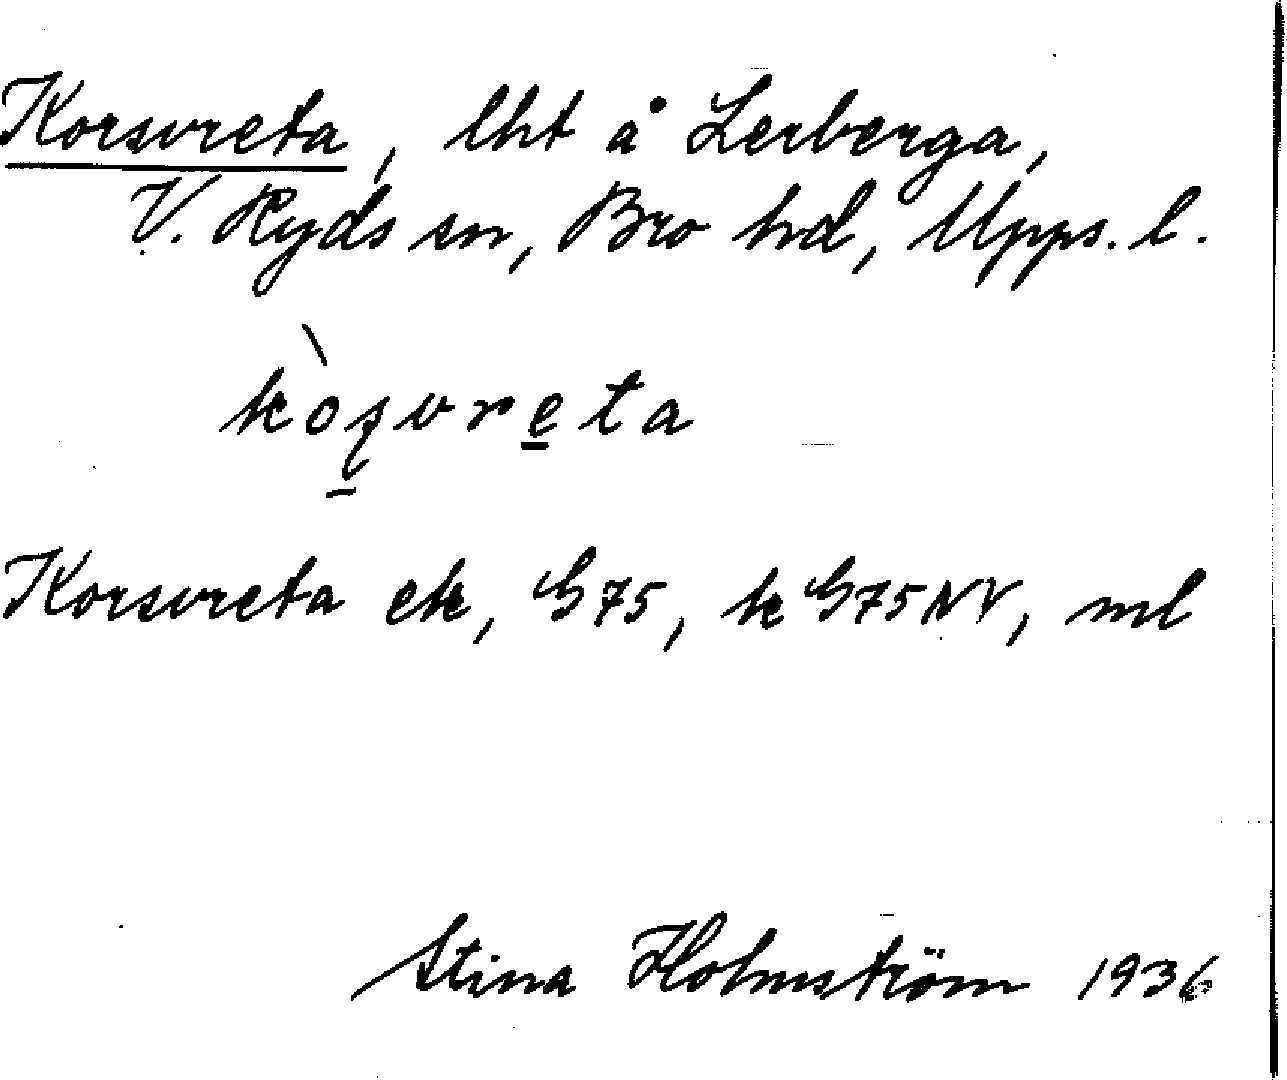 Korsvreta, lht å Lerberga,
V. Ryds sn, Bro hd, Upps. l.
kòșvre̲ta
Korsvreta ek, G75, k G75NV, ml
Stina Holmström 1936